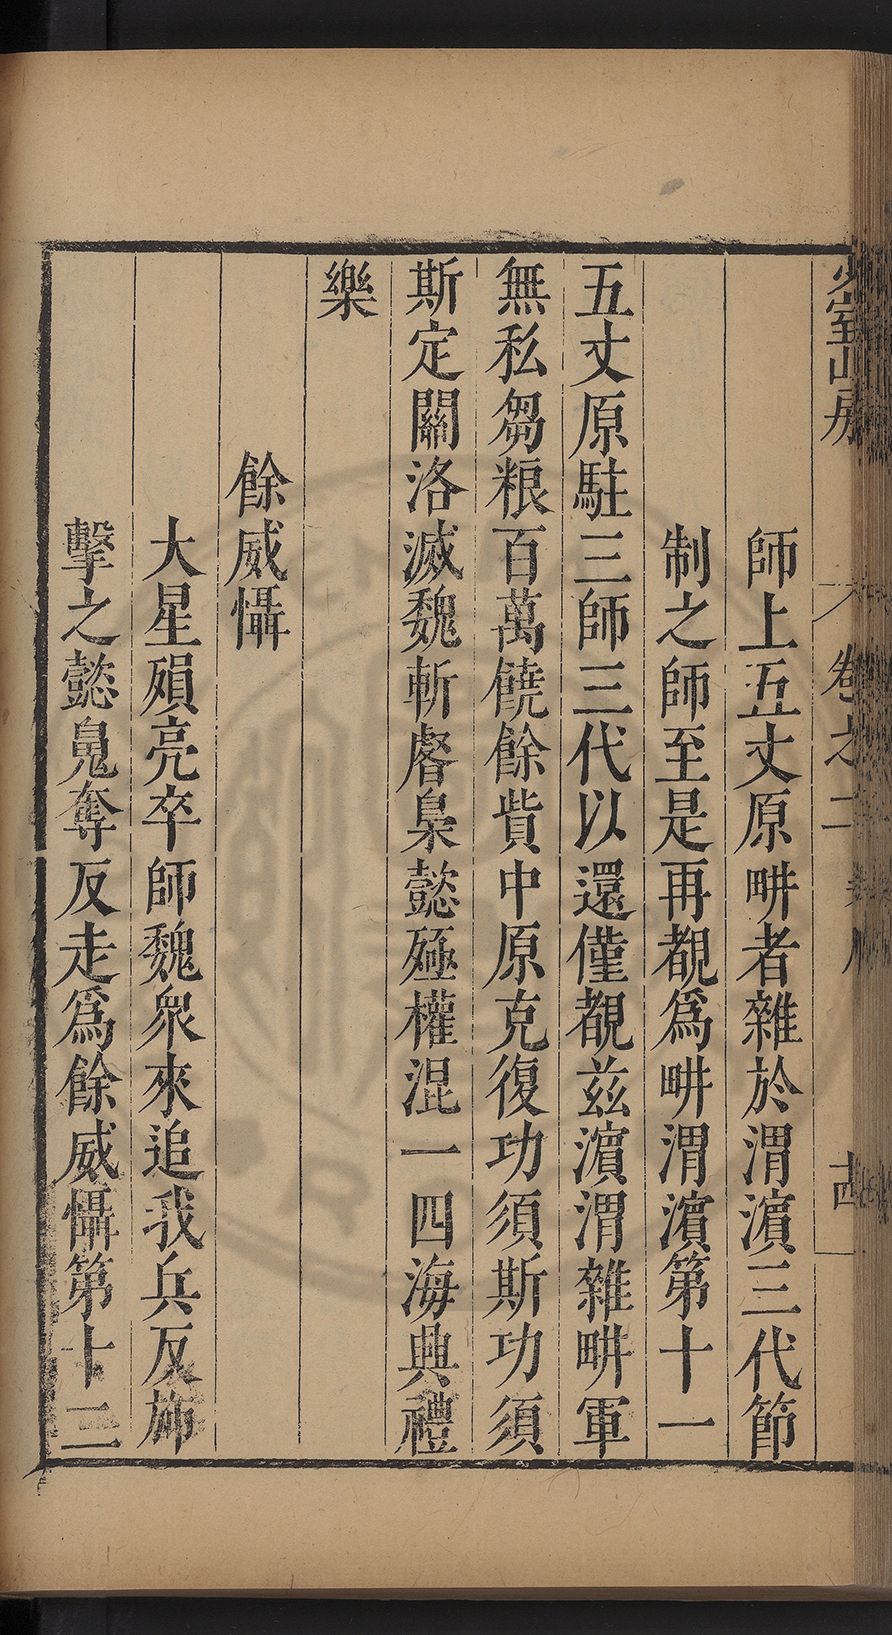 少室山房
卷之二
師上五丈原畊者雜於渭濵三代節
制之師至是再覩爲畊渭濵第十一
五丈原駐三師三代以還僅覩兹濵渭雜畊軍
無私芻粮百萬饒餘貲中原克復功須斯功須
斯定關洛滅魏斬睿梟懿殛權混一四海典禮
樂
餘威懾
大星殞亮卒師魏衆來追我兵反斾
擊之懿鬼奪反走爲餘威懾第十二